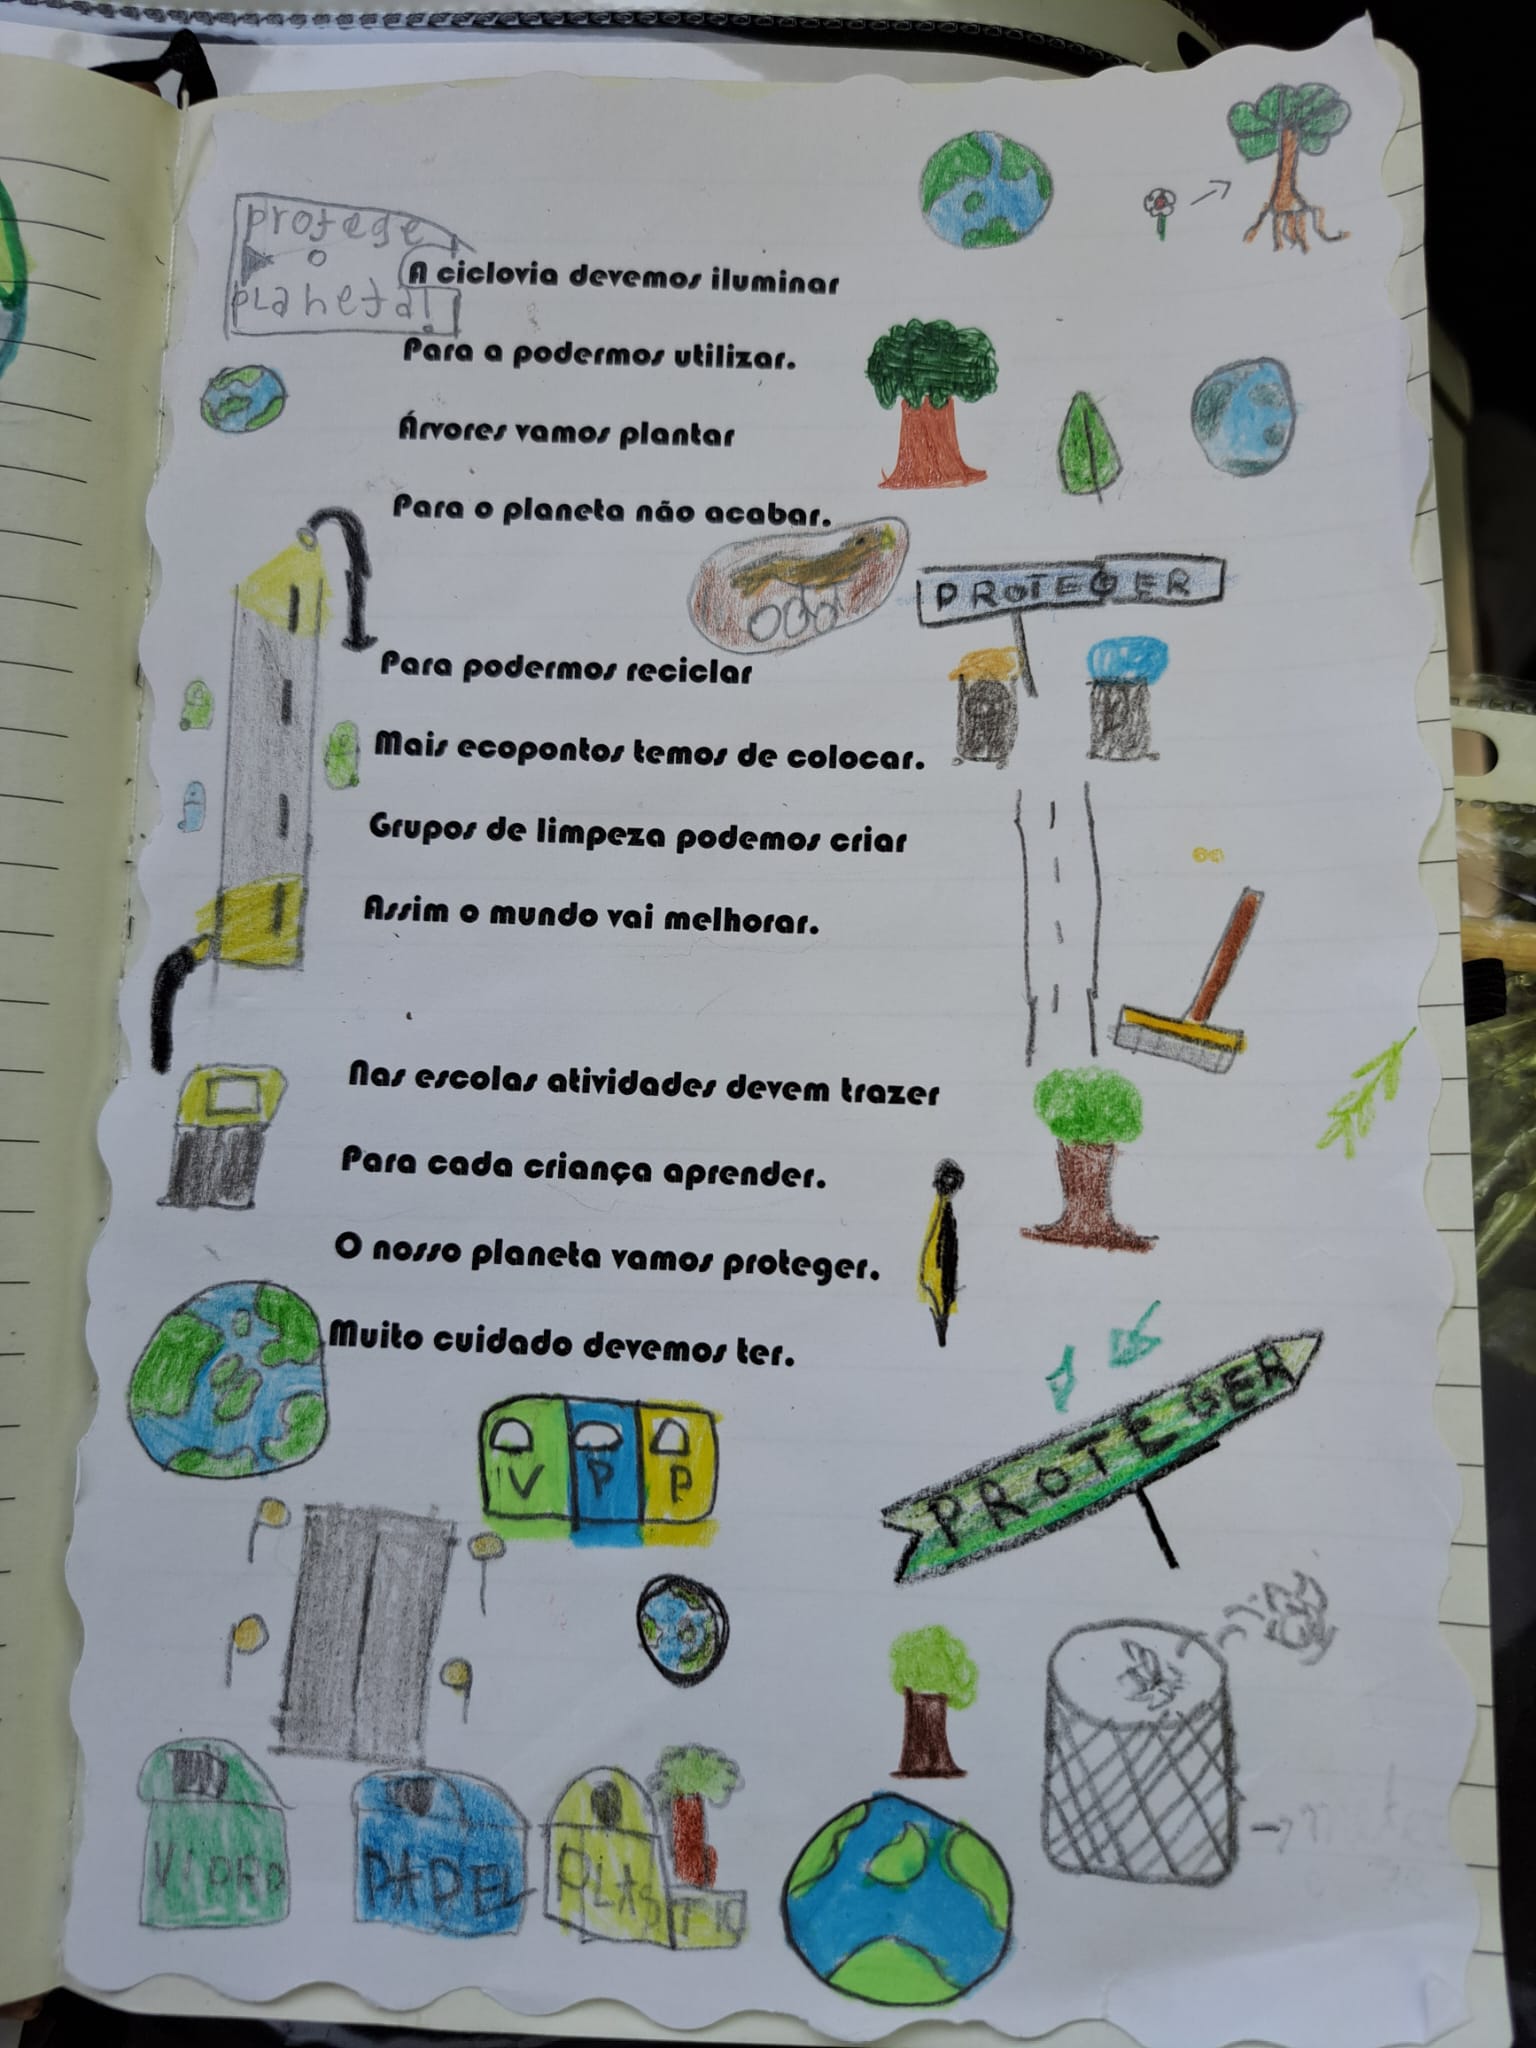 protege
o
planeta!
A ciclovia devemos iluminar
Para a podermos utilizar.
Árvores vamos plantar
Para o planeta não acabar.
PROTEGER
Para podermos reciclar
Mais ecopontos temos de colocar.
Grupos de limpeza podemos criar
Assim o mundo vai melhorar.
Nas escolas atividades devem trazer
Para cada criança aprender.
O nosso planeta vamos proteger.
Muito cuidado devemos ter.
V P P
PROTEGER
VIDRO PAPEL PLASTIC